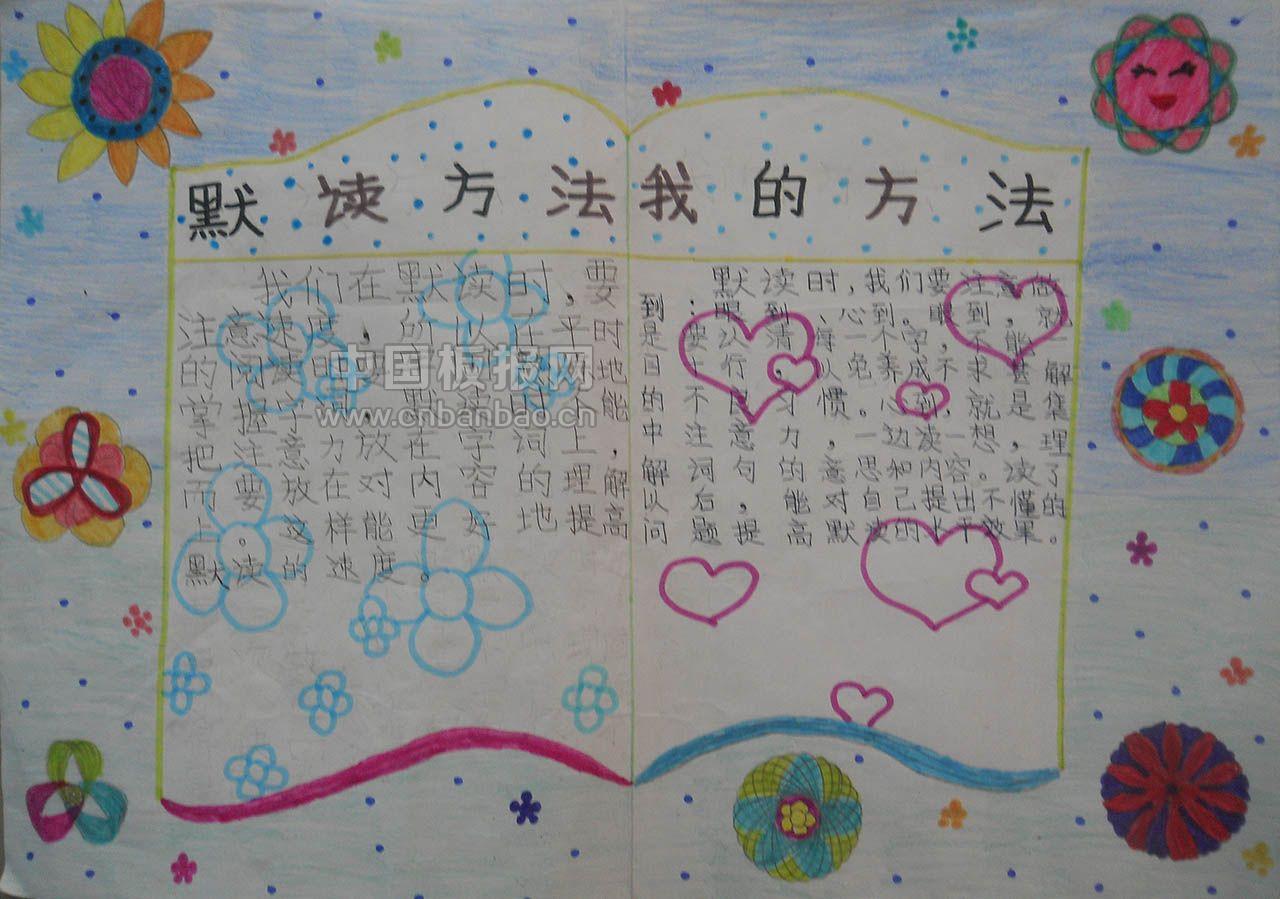 默读方法
我的方法
我们在默读时,要
注意速度,的以在平时
把注意力放在字词上,
而要放在对内容的理解
上。这样能更好地提高
默读的速度。
默读时,我们要注意,做
到:眼到、心到。眼到,就
目行,以免养成不求甚解
的不良习惯。心到,就是集
中注意力,一边读一想,理
解词句的意思和内容。读懂了
以后,能对自己提出不懂的
问题,提高默读的水平效果。
中国板报网
www.cnbanbao.cn